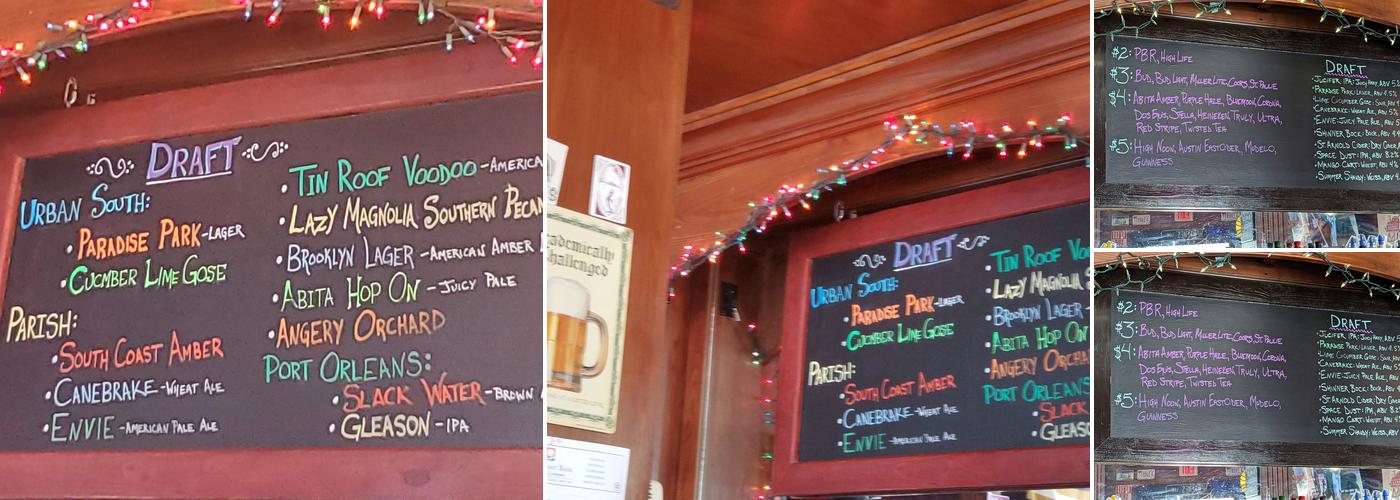 DRAFT
URBAN SOUTH:
• PARADISE PARK-LAGER
• CUCMBER LIME GOSE
PARISH:
• SOUTH COAST AMBER
• CANEBRAKE-WHEAT ALE
• ENVIE-AMERICAN PALE ALE
• TIN ROOF VOODOO-AMERICA
• LAZY MAGNOLIA SOUTHERN PECAN
• BROOKLYN LAGER-AMERICAN AMBER
• ABITA HOP ON-JUICY PALE
• ANGERY ORCHARD
PORT ORLEANS:
• SLACK WATER-BROWN
• GLEASON-IPA
ademically
hallenged
DRAFT
URBAN SOUTH:
• PARADISE PARK-LAGER
• CUCMBER LIME GOSE
PARISH:
• SOUTH COAST AMBER
• CANEBRAKE-WHEAT ALE
• ENVIE-AMERICAN PALE ALE
• TIN ROOF VOO
• LAZY MAGNOLIA S
• BROOKLYN LAGER-
• ABITA HOP ON
• ANGERY ORCHA
PORT ORLEANS
• SLACK
• GLEASO
$2: PBR, HIGH LIFE
$3: BUD, BUD LIGHT, MILLER LITE, COORS, ST. PAULIE
$4: ABITA AMBER, PURPLE HAZE, BLUEMOON, CORONA,
DOS EQUIS, STELLA, HEINEKEN, TRULY, ULTRA,
RED STRIPE, TWISTED TEA
$5: HIGH NOON, AUSTIN EASTCIDER, MODELO,
GUINNESS
DRAFT
• JUCIFER IPA: JUICY HAZY, ABV 5
• PARADISE PARK: LAGER, ABV 4.5%
• LIME CUCUMBER GOSE: SOUR, AB
• CANEBRAKE: WHEAT, ABV 5%
• ENVIE: JUICY PALE ALE, ABV 5
• SHINNER BOCK: BOCK, ABV 4
• ST. ARNOLD CIDER: DRY CIDER, A
• SPACE DUST: IPA, ABV 8.2%
• MANGO CART: WHEAT, ABV 4%
• SUMMER SHANDY: WEISS, ABV 4
$2: PBR, HIGH LIFE
$3: BUD, BUD LIGHT, MILLER LITE, COORS, ST. PAULIE
$4: ABITA AMBER, PURPLE HAZE, BLUEMOON, CORONA,
DOS EQUIS, STELLA, HEINEKEN, TRULY, ULTRA,
RED STRIPE, TWISTED TEA
$5: HIGH NOON, AUSTIN EASTCIDER, MODELO,
GUINNESS
DRAFT
• JUCIFER IPA: JUICY HAZY, ABV 5
• PARADISE PARK: LAGER, ABV 4.5%
• LIME CUCUMBER GOSE: SOUR, AB
• CANEBRAKE: WHEAT, ABV 5%
• ENVIE: JUICY PALE ALE, ABV
• SHINNER BOCK: BOCK, ABV 4
• ST. ARNOLD CIDER: DRY CIDER
• SPACE DUST: IPA, ABV 8.2%
• MANGO CART: WHEAT, ABV 4%
• SUMMER SHANDY: WEISS, ABV 4